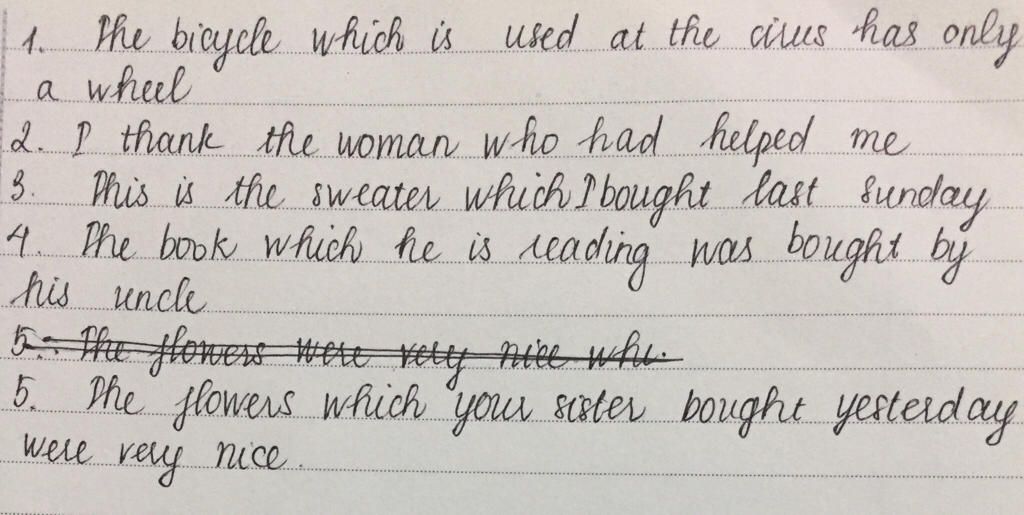 1. The bicycle which is used at the circus has only
a wheel
2. I thank the woman who had helped me
3. This is the sweater which I bought last sunday
4. The book which he is reading was bought by
his uncle
5. The flowers were very nice whi.
5. The flowers which your sister bought yesterday
were very nice.